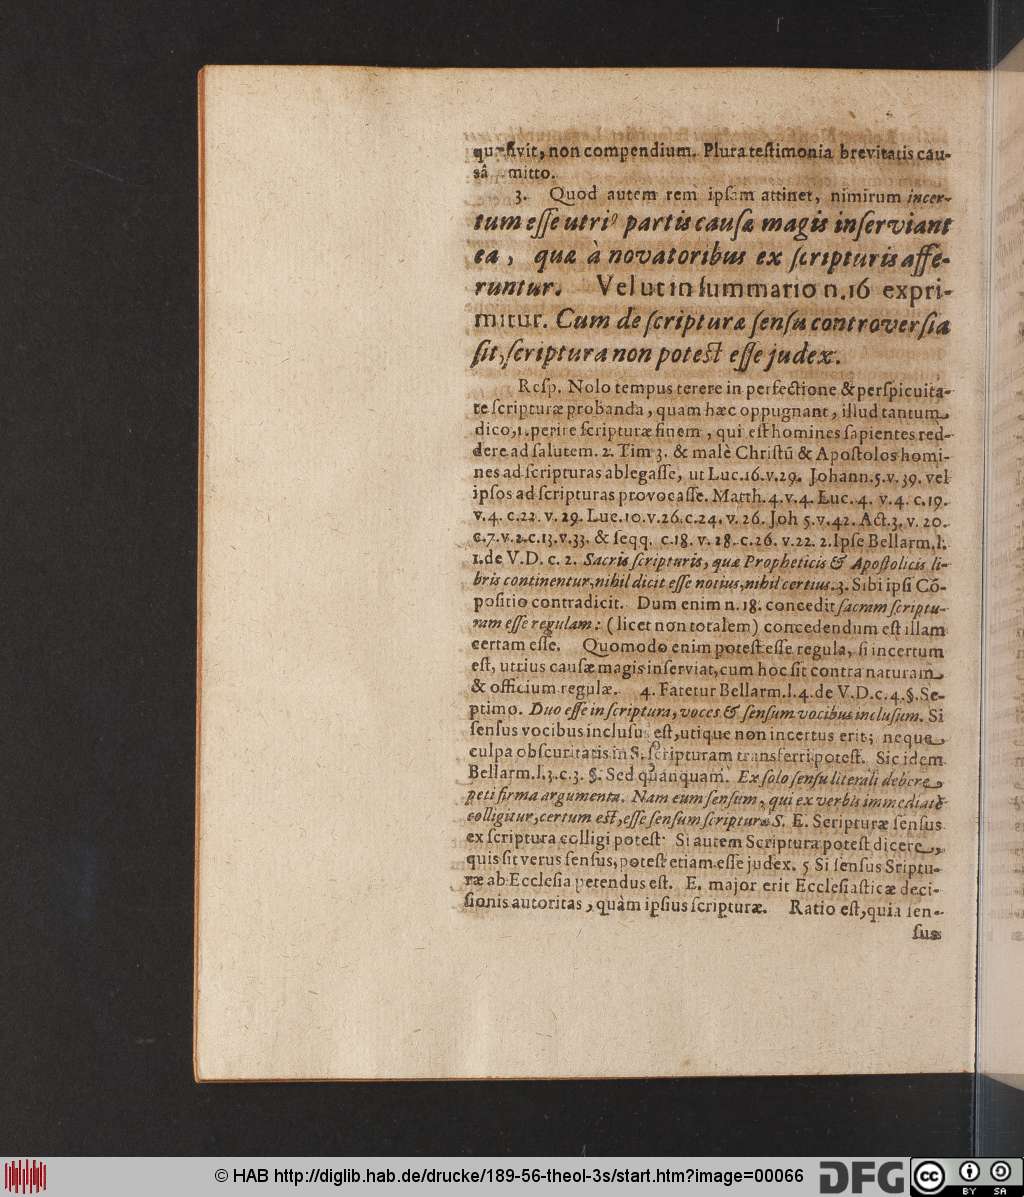 quæſivit, non compendium. Plura teſtimonia brevitatis cau-
sâ mitto.
3. Quod autem rem ipſam attinet, nimirum incer-
tum eſſe utriꝰ partis cauſæ magis inſerviant
ea, quæ à novatoribus ex ſcripturis affe-
runtur. Vel ut in ſummario n.16 expri-
mitur. Cum de ſcripturæ ſenſu controverſia
ſit, ſcriptura non poteſt eſſe judex.
Reſp. Nolo tempus terere in perfectione & perſpicuita-
te ſcripturæ probanda, quam hæc oppugnant, illud tantum
dico, 1. perire ſcripturæ finem, qui eſt homines ſapientes red-
dere ad ſalutem. 2. Tim 3. & malè Chriſtū & Apoſtolos homi-
nes ad ſcripturas ablegaſſe, ut Luc.16.v.29. Johann.5.v.39. vel
ipſos ad ſcripturas provocaſſe. Matth.4.v.4. Luc.4. v.4. c.19.
v.4. c.22. v. 29. Luc.10.v.26.c.24. v. 26. Joh 5.v.42. Act.3. v. 20.
c.7.v.2.c.13.v.33. & ſeqq. c.18. v. 28. c.26. v.22. 2. Ipſe Bellarm.l.
1.de V.D. c. 2. Sacris ſcripturis, quæ Propheticis & Apoſtolicis li-
bris continentur, nihil dicit eſſe notius, nihil certius. 3. Sibi ipſi Cō-
poſitio contradicit. Dum enim n.18. concedit ſacram ſcriptu-
ram eſſe regulam: (licet non totalem) concedendum eſt illam
certam eſſe. Quomodo enim poteſt eſſe regula, ſi incertum
eſt, utrius cauſæ magis inſerviat, cum hoc ſit contra naturam
& officium regulæ. 4. Fatetur Bellarm.l.4.de V.D.c.4.§.Se-
ptimo. Duo eſſe in ſcriptura, voces & ſenſum vocibus incluſum. Si
ſenſus vocibus incluſus eſt, utique non incertus erit; neque
culpa obſcuritatis in S. ſcripturam transferri poteſt. Sic idem
Bellarm.l.3.c.3. §. Sed quanquam. Ex ſolo ſenſu literali debere
peti firma argumenta. Nam eum ſenſum, qui ex verbis immediatè
colligitur, certum eſt, eſſe ſenſum ſcripturæ S. E. Scripturæ ſenſus
ex ſcriptura colligi poteſt. Si autem Scriptura poteſt dicere,
quis ſit verus ſenſus, poteſt etiam eſſe judex. 5 Si ſenſus Sriptu-
ræ ab Eccleſia petendus eſt. E. major erit Eccleſiaſticæ deci-
ſionis autoritas, quàm ipſius ſcripturæ. Ratio eſt, quia ſen-
ſus
© HAB http://diglib.hab.de/drucke/189-56-theol-3s/start.htm?image=00066
DFG
cc
BY SA